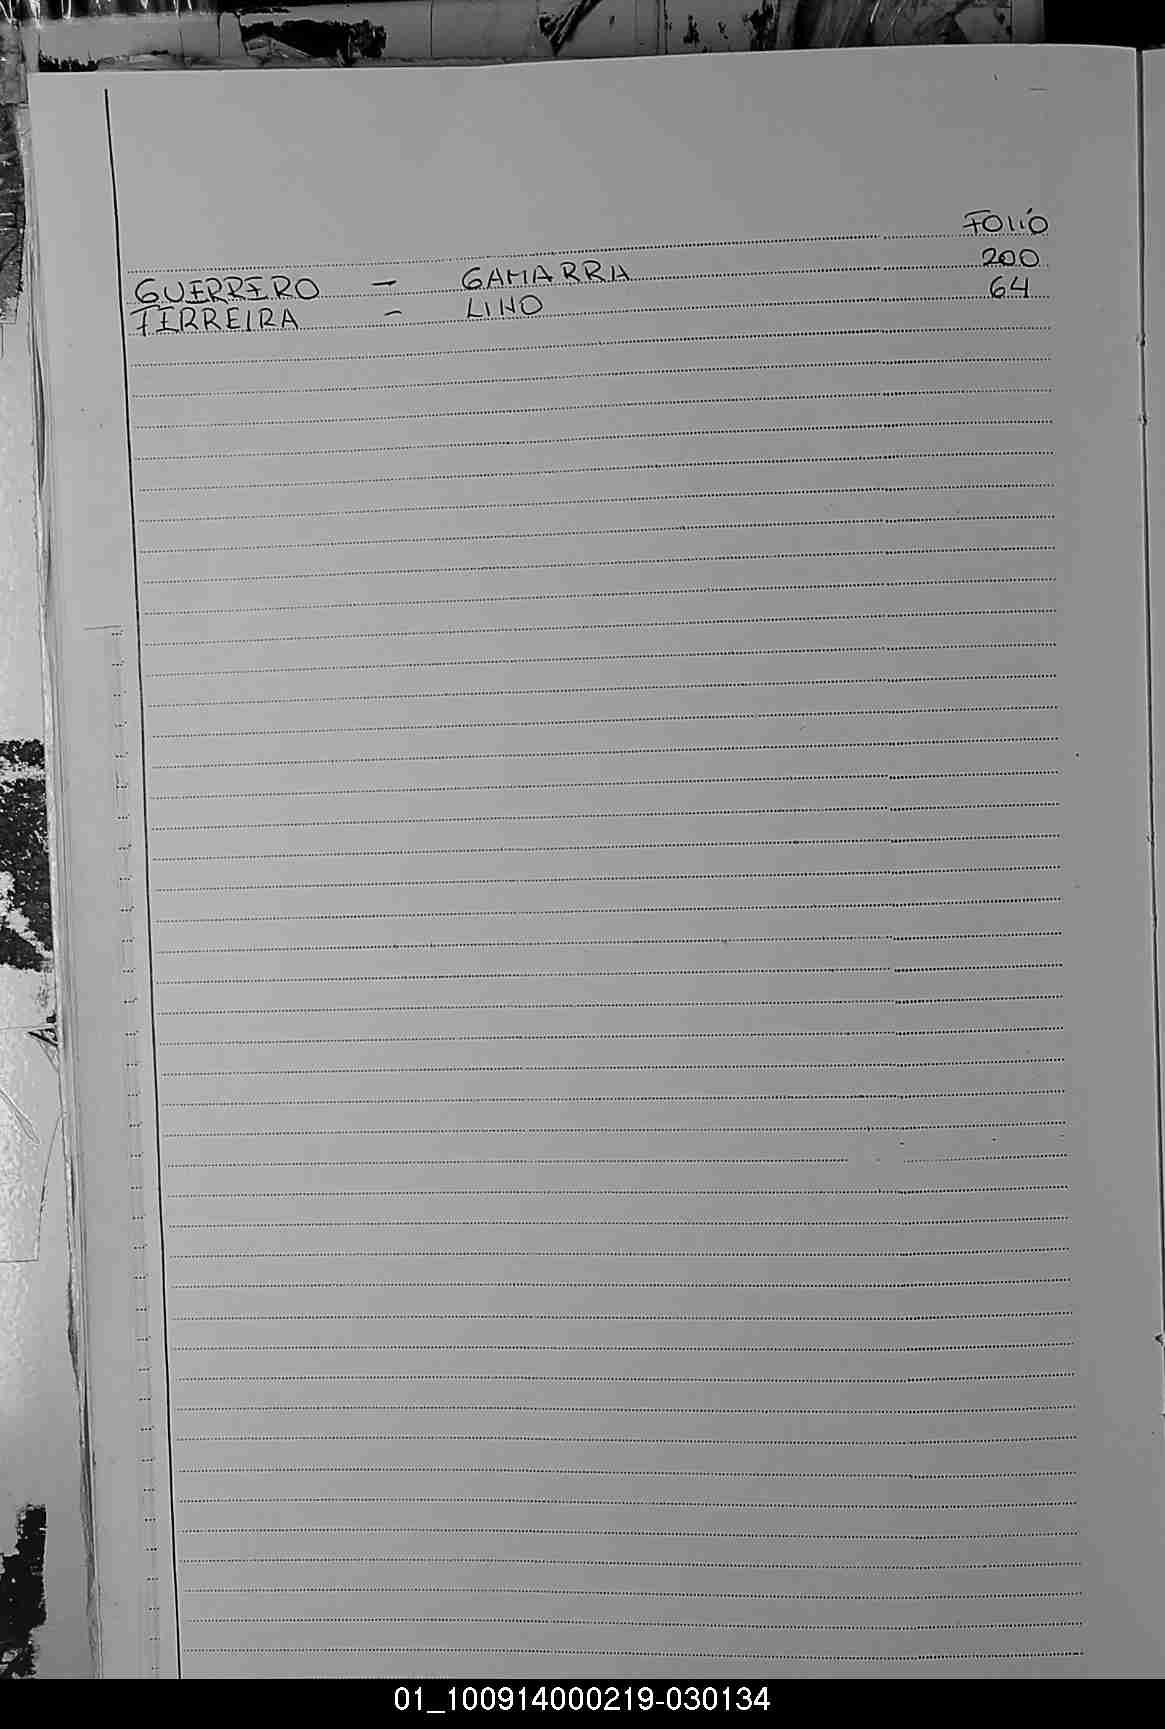 FOLIO
GUERRERO - GAMARRA 200
FERREIRA - LINO 64
01_100914000219-030134